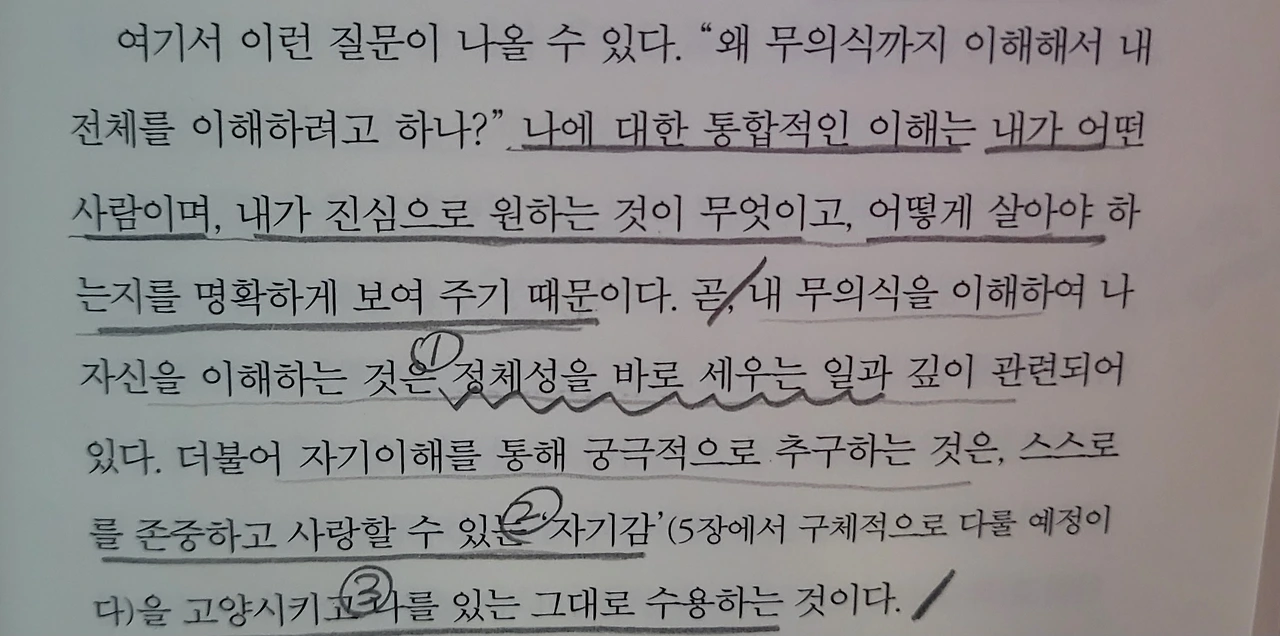 여기서 이런 질문이 나올 수 있다. “왜 무의식까지 이해해서 내
전체를 이해하려고 하나?” 나에 대한 통합적인 이해는 내가 어떤
사람이며, 내가 진심으로 원하는 것이 무엇이고, 어떻게 살아야 하
는지를 명확하게 보여 주기 때문이다. 곧, 내 무의식을 이해하여 나
자신을 이해하는 것은 ① 정체성을 바로 세우는 일과 깊이 관련되어
있다. 더불어 자기이해를 통해 궁극적으로 추구하는 것은, 스스로
를 존중하고 사랑할 수 있는 ② ‘자기감’(5장에서 구체적으로 다룰 예정이
다)을 고양시키고 ③ 나를 있는 그대로 수용하는 것이다.